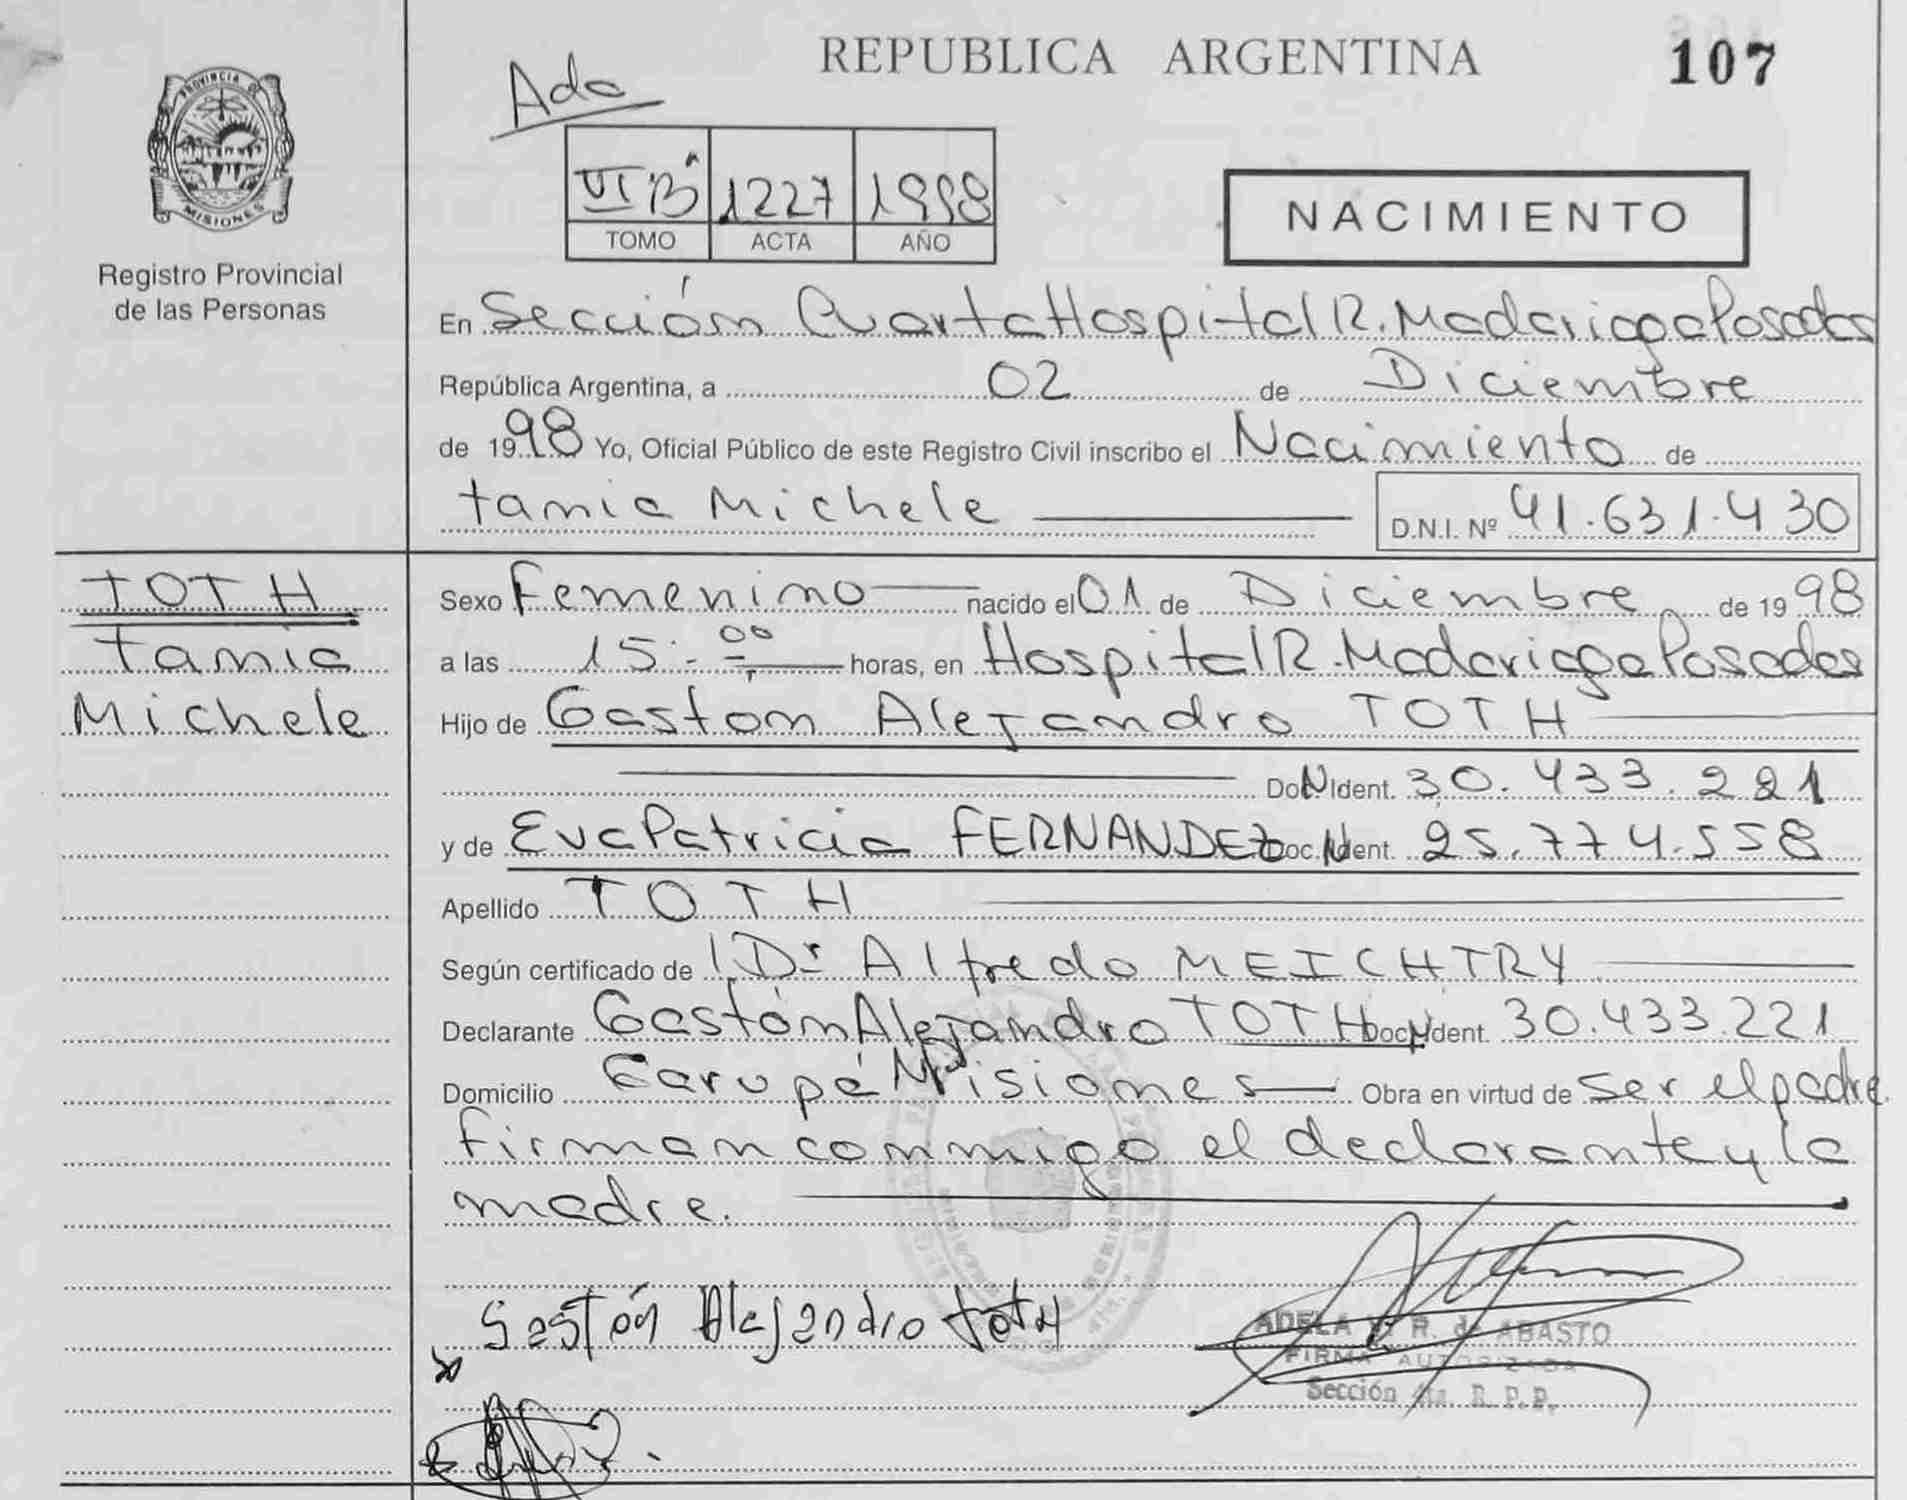 REPUBLICA ARGENTINA
107
PROVINCIA DE
MISIONES
Registro Provincial
de las Personas
Ada
VI Bª 1227 1998
TOMO ACTA AÑO
NACIMIENTO
En Sección Cuarta Hospital R. Madariaga Posadas
República Argentina, a 02 de Diciembre
de 1998 Yo, Oficial Público de este Registro Civil inscribo el Nacimiento de
tania Michele D.N.I. Nº 41.631.430
TOTH
tania
Michele
Sexo Femenino nacido el 01 de Diciembre de 1998
a las 15:00 horas, en Hospital R. Madariaga Posadas
Hijo de Gaston Alejandro TOTH
Doc. N Ident. 30.433.221
y de Eva Patricia FERNANDEZ Doc. N Ident. 25.774.558
Apellido TOTH
Según certificado de Dr Alfredo MEICHTRY
Declarante Gastón Alejandro TOTH Doc. N Ident. 30.433.221
Domicilio Garupá Misiones Obra en virtud de ser el padre.
firman conmigo el declarante y la
madre.
Gastón Alejandro totH
ADELA R. de ABASTO
FIRMA AUTORIZADA
Sección 4ta. R.P.P.